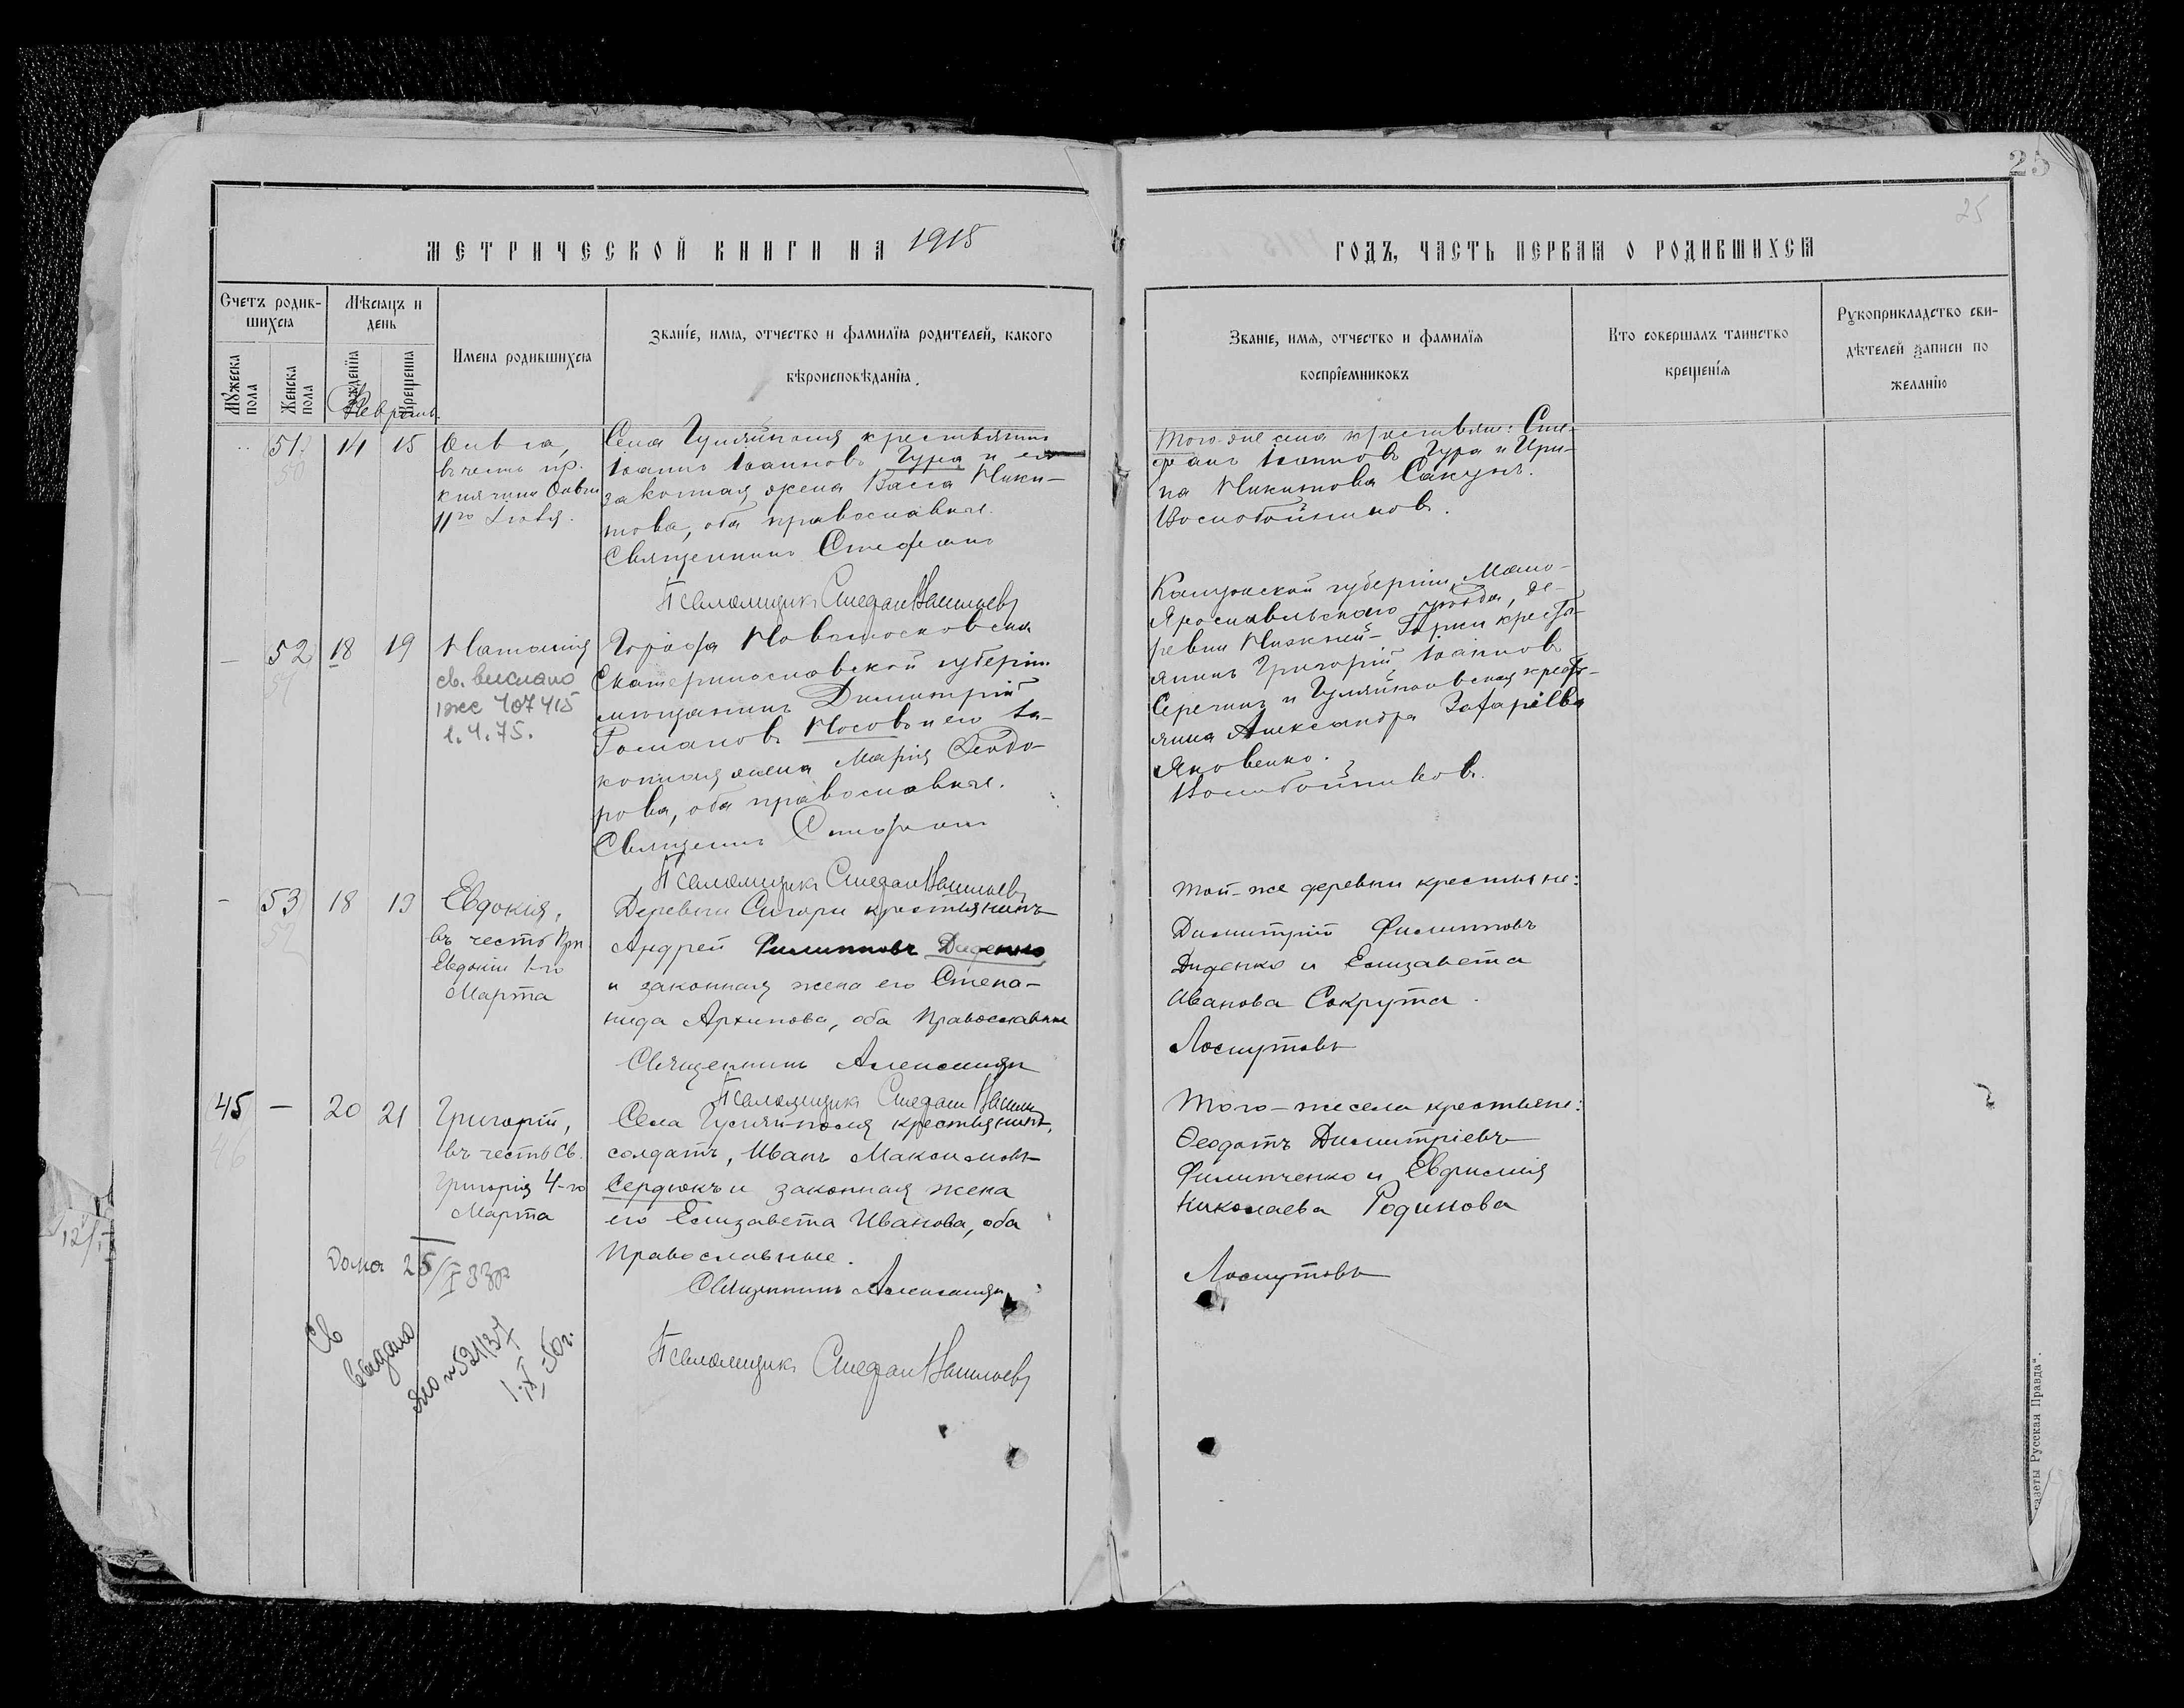 25
25
МЕТРИЧЕСКОЙ КНИГИ НА 1915
ГОДЪ, ЧАСТЬ ПЕРВАЯ О РОДИВШИХСЯ
Счетъ родив-
шихся
Мѣсяцъ и
день
Мужеска
пола
Женска
пола
Рожденія
Крещенія
Имена родившихся
Званіе, имя, отчество и фамилія родителей, какого
вѣроисповѣданія.
Званіе, имя, отчество и фамилія
воспріемниковъ
Кто совершалъ таинство
крещенія
Рукоприкладство сви-
дѣтелей записи по
желанію
Февраль.
51
50
14 15
Ольга,
въ честь пр.
княгини Ольги
11го Іюля.
Села Гуляйполя крестьянинъ
Іоаннъ Іоанновъ Гура и его
законная жена Васса Ники-
това, оба православные.
Священникъ Стефанъ
Псаломщикъ Стефан
Того-же села крестьяне: Сте-
фанъ Іоанновъ Гура и Ири-
на Никитова Сакунъ.
Воскобойниковъ.
— 52
51
18 19
Наталия
св. выслано
1 же 407415
1.4.75.
Города Новомосковска
Екатеринославской губерніи
мѣщанинъ Димитрій
Романовъ Носовъ и его за-
конная жена Марія Ѳеодо-
рова, оба православные.
Священникъ Стефанъ
Псаломщикъ Стефан
Калужской губерніи, Мало-
Ярославльскаго уѣзда, де-
ревни Нижней- крестья-
янинъ Григорій Іоанновъ
Серегинъ и Гуляйпольская крестья-
янка Александра Захаріева
Яковенко.
Воскобойниковъ.
- 53
52
18 19
Евдокія,
въ честь Прп.
Евдокіи 1-го
Марта
Деревни крестьянинъ
Андрей Филипповъ Диденко
и законная жена его Степа-
нида Архипова, оба Православные
Священникъ Александръ
Псаломщикъ Стефан
Той-же деревни крестьяне:
Димитрій Филипповъ
Диденко и Елизавета
Иванова Сокрута.
Лоскутовъ
45 —
46
20 21
Григорій,
въ честь Св.
Григорія 4-го
Марта
Села Гуляй-поля крестьянинъ,
солдатъ, Иванъ Максимовъ
Сердюкъ и законная жена
его Елизавета Иванова, оба
Православные.
Священникъ Александръ
Псаломщикъ Стефан
Того-же села крестьяне:
Ѳеодотъ Димитріевъ
Филипченко и Евфимія
Николаева Родинова
Лоскутовъ
Св
выдано
яю № 521137
1.X-50г.
азеты Русская Правда".